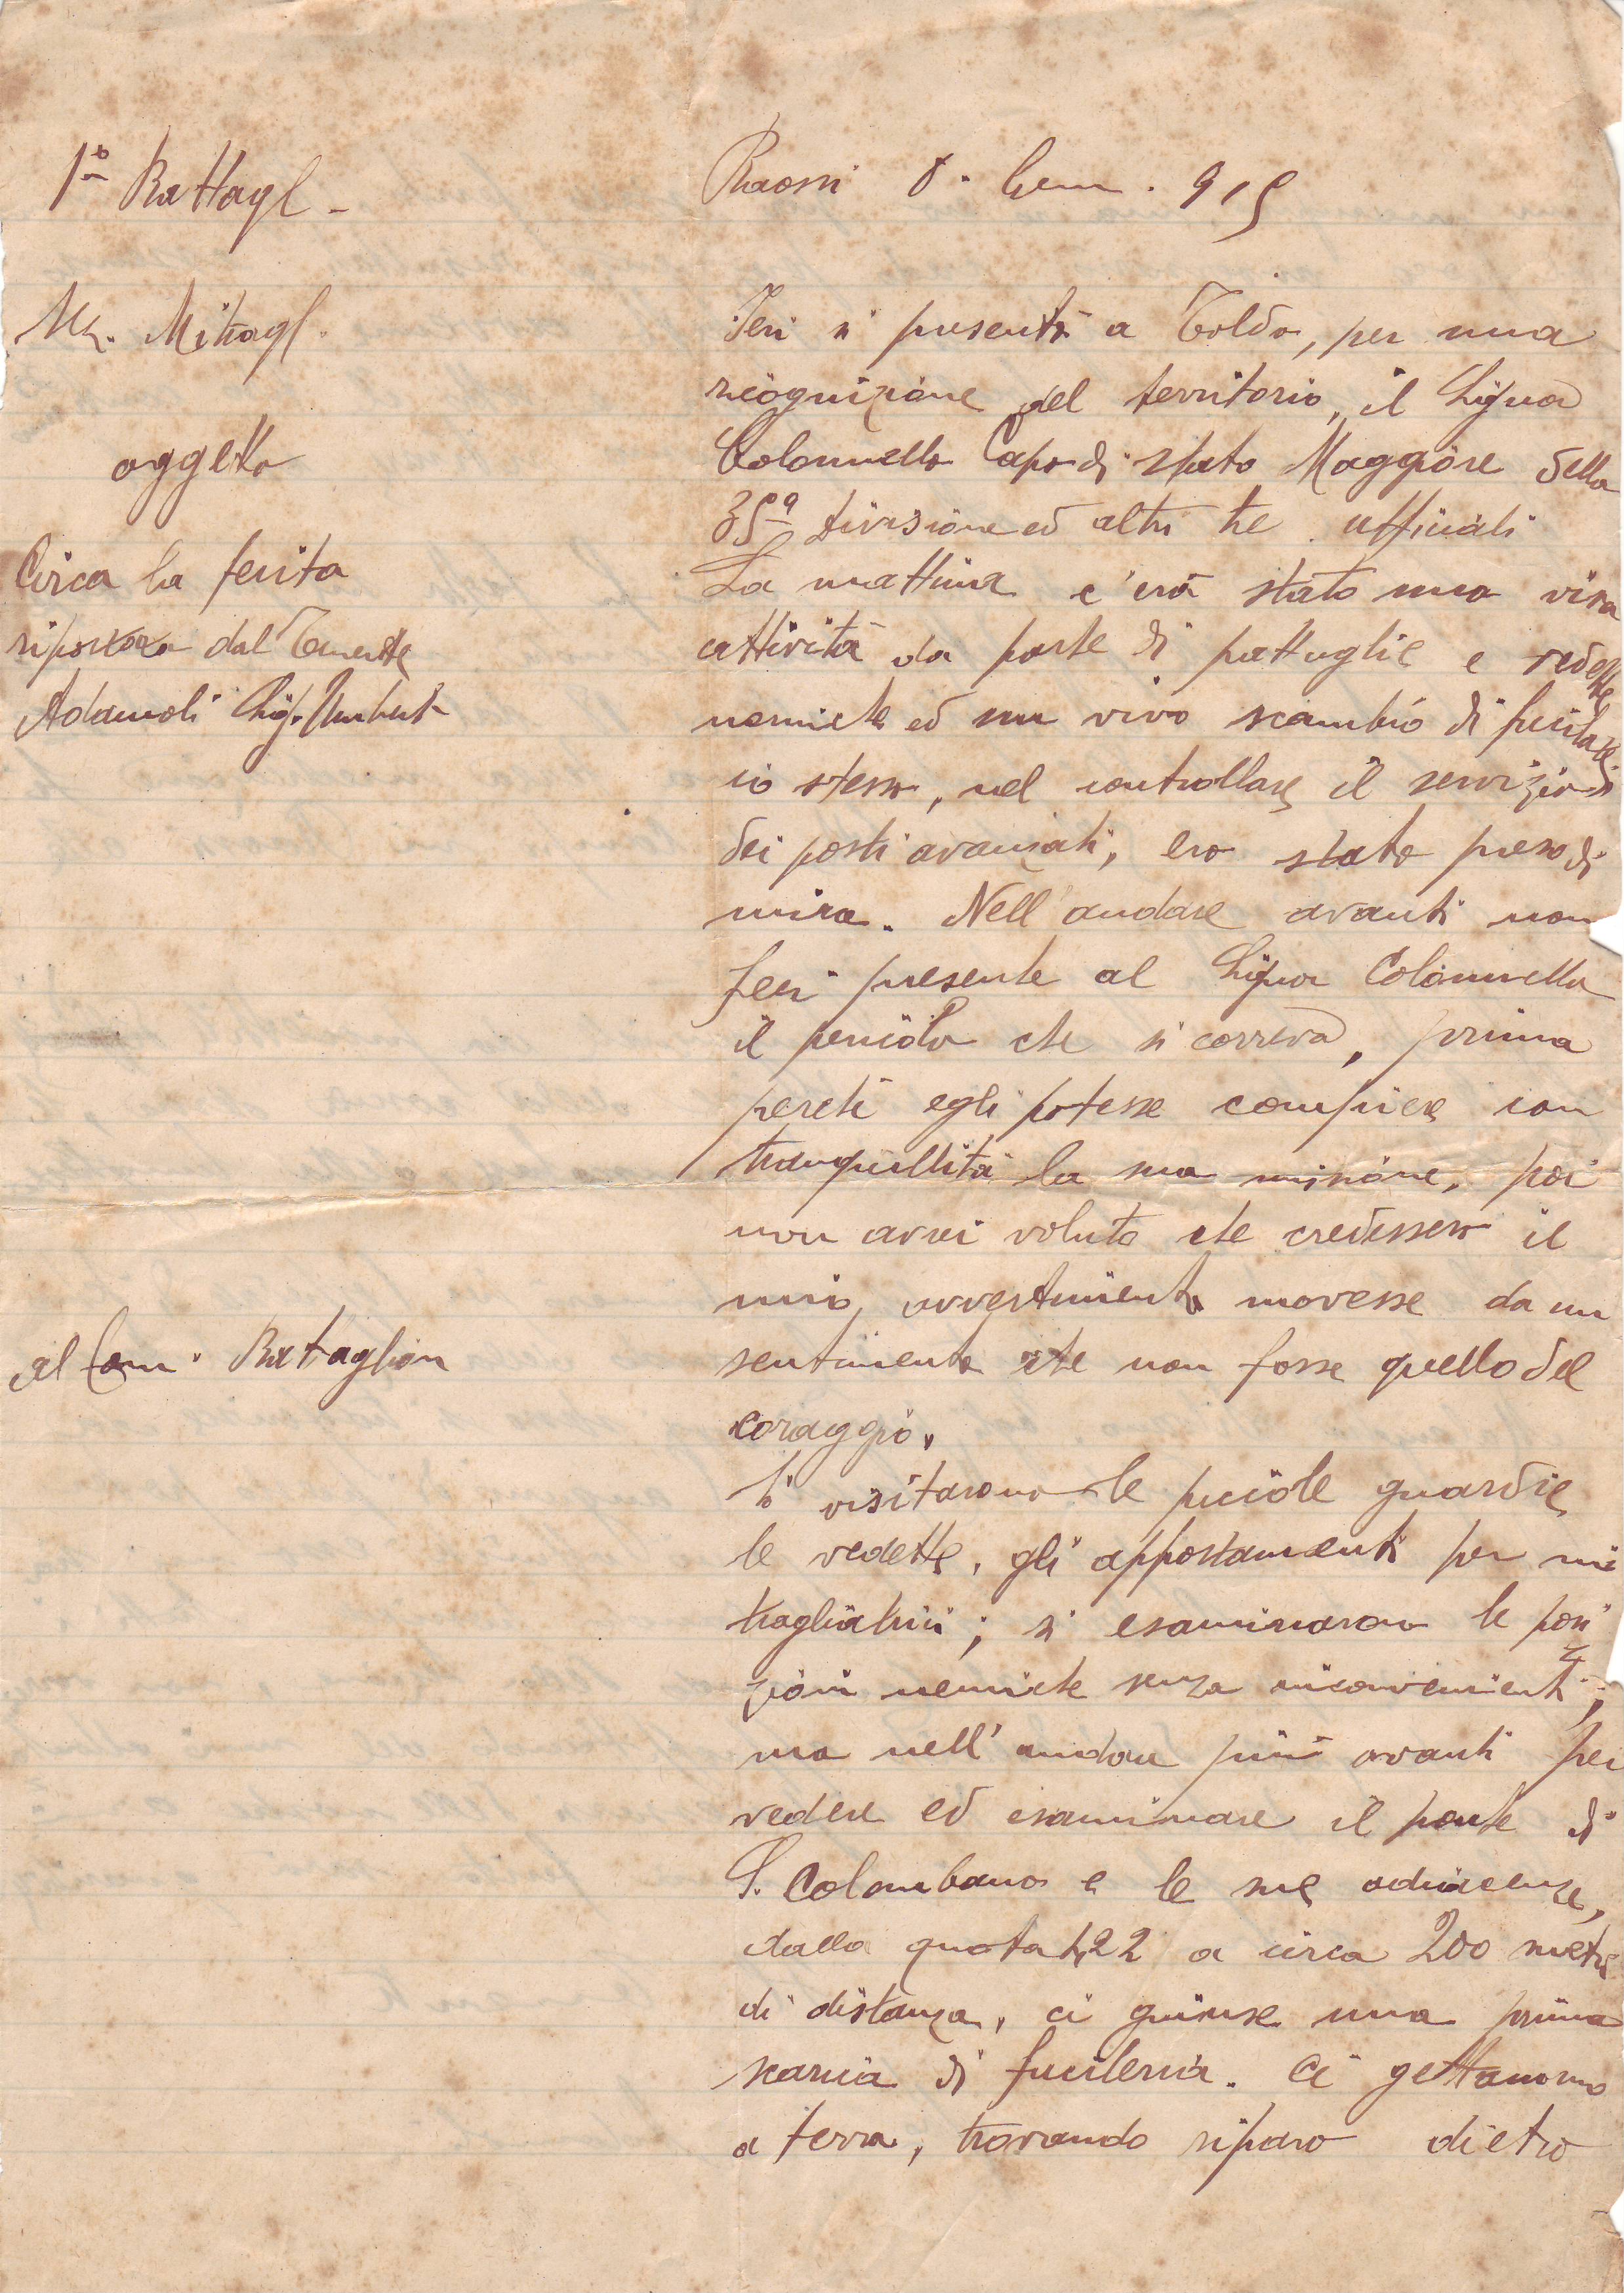 1º Battagl.
Sez. Mitragl.
oggetto
Circa la ferita
riportata dal Tenente
Adamoli Sig. Umberto
al Com. Battaglion
Raossi 8. Genn. 915
Ieri si presentò a Toldo, per una
ricognizione del territorio, il Signor
Colonnello Capo di stato Maggiore della
35ª divisione ed altri tre ufficiali
La mattina c'era stato una viva
attività da parte di pattuglie e vedette
nemiche ed un vivo scambio di fucilate
io stesso, nel controllare il servizio di
dei posti avanzati, ero stato preso di
mira. Nell'andare avanti non
feci presente al Signor Colonnello
il pericolo che si correva, prima
perchè egli potesse compiere con
tranquillità la sua missione, poi
non avrei voluto che credessero il
mio avvertimento movesse da un
sentimento che non fosse quello del
coraggio.
Si visitarono le piccole guardie
le vedette, gli appostamenti per mi
tragliatrici; si esaminarono le posi
zioni nemiche senza inconvenienti;
ma nell'andare più avanti per
vedere ed esaminare il ponte di
S. Colombano e le sue adiacenze,
dalla quota 422 a circa 200 metri
di distanza, ci giunse una prima
scarica di fucileria. Ci gettammo
a terra, trovando riparo dietro